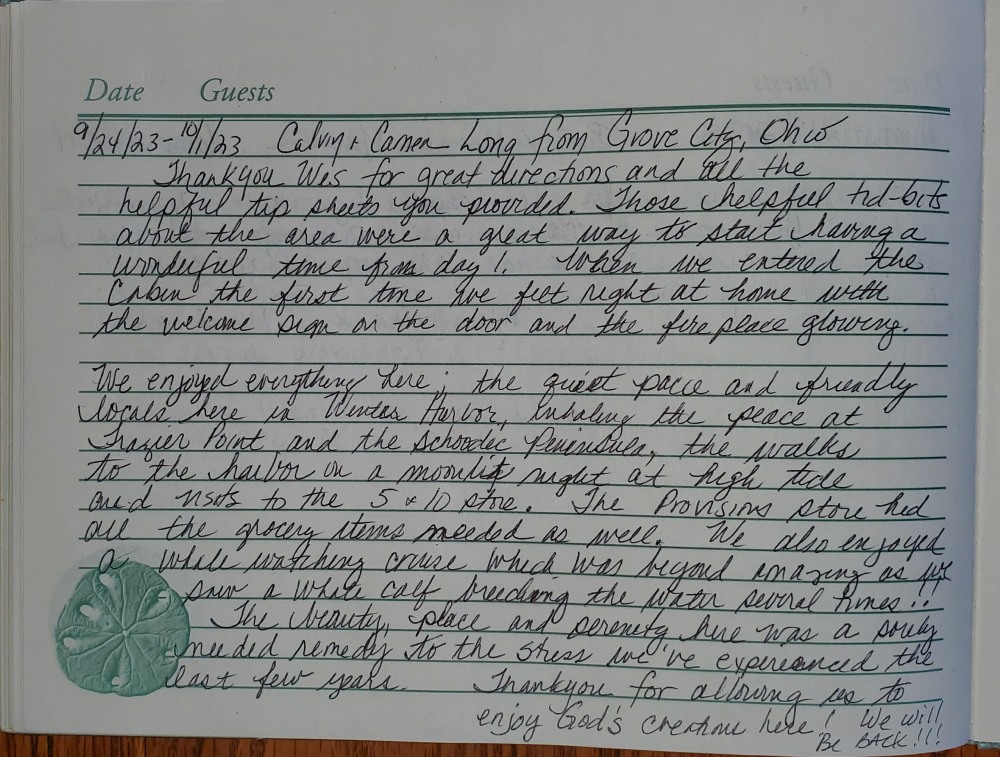 Date Guests
9/24/23-10/1/23 Calvin + Carmen Long from Grove City, Ohio
Thankyou Wes for great directions and all the
helpful tip sheets you provided. Those helpful tid-bits
about the area were a great way to start having a
wonderful time from day 1. When we entered the
Cabin the first time we felt right at home with
the welcome sign on the door and the fire place glowing.
We enjoyed everything here; the quiet pace and friendly
locals here in Winter Harbor, inhaling the peace at
Frazier Point and the Schoodic Peninsula, the walks
to the harbor on a moonlit night at high tide
and visits to the 5 & 10 store. The Provisions store had
all the grocery items needed as well. We also enjoyed
a whale watching cruise which was beyond amazing as we
saw a whale calf breeching the water several times!!
The beauty, place and serenity here was a sorely
needed remedy to the stress we've experienced the
last few years. Thankyou for allowing us to
enjoy God's creations here! We will
Be BACK!!!